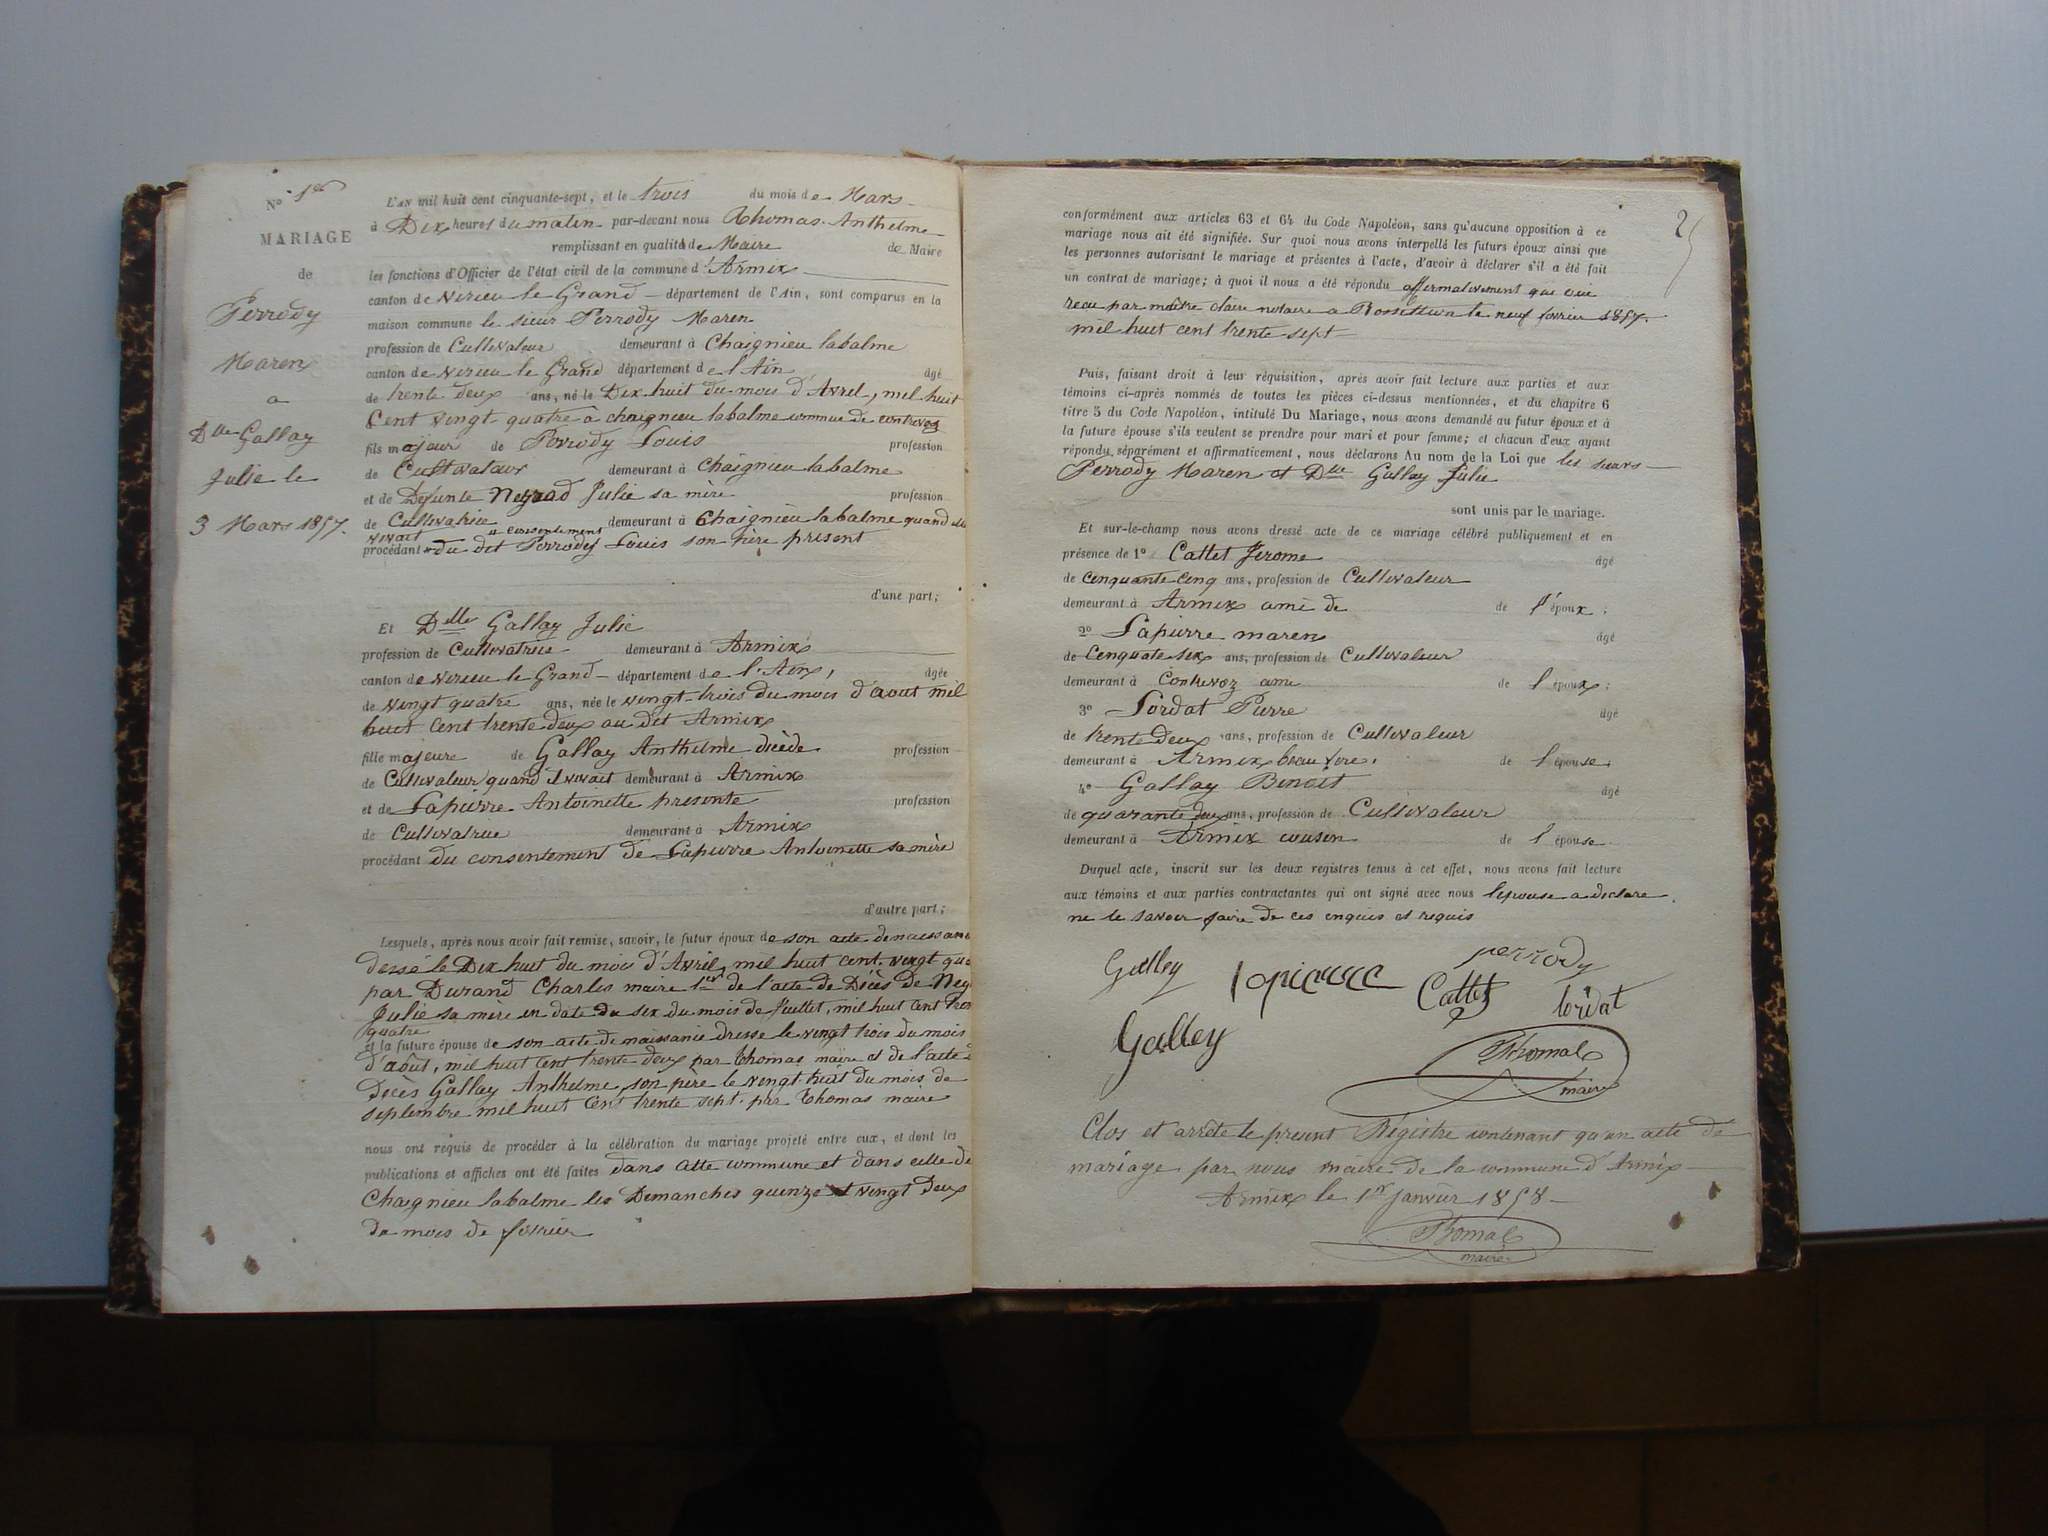 N° 1er
MARIAGE
de
Perrody
Maren
a
Dlle Gallay
Julie le
3 Mars 1857.
L'AN mil huit cent cinquante-sept, et le trois du mois de Mars
à Dix heures du matin par-devant nous Thomas Anthelme
remplissant en qualité de Maire de Maire
les fonctions d'Officier de l'état civil de la commune d'Armix
canton de Virieu le Grand département de l'Ain, sont comparus en la
maison commune le sieur Perrody Maren
profession de Cultivateur demeurant à Chaignieu labalme
canton de Virieu le Grand département de l'Ain âgé
de trente deux ans, né le Dix huit du mois d'Avril, mil huit
Cent vingt quatre à chaignieu labalme commue de contrevoz
fils majeur de Perrody Louis profession
de Cultivateur demeurant à Chaignieu labalme
et de Defunte Julie sa mère profession
de Cultivatrice demeurant à Chaignieu labalme quand elle
vivait consentement
procédant du dit Perrody Louis son père present
d'une part;
Et Delle Gallay Julie
profession de Cultivatrice demeurant à Armix
canton de Virieu le Grand département de l'Ain, âgée
de vingt quatre ans, née le vingt-trois du mois d'aout mil
huit Cent trente deux au dit Armix
fille majeure de Gallay Anthelme décède profession
de Cultivateur quand il vivait demeurant à Armix
et de Lapierre Antoinette presente profession
de Cultivatrice demeurant à Armix
procédant du consentement de Lapierre Antoinette sa mère
d'autre part;
Lesquels, après nous avoir fait remise, savoir, le futur époux de son acte de naissance
dressé le Dix huit du mois d'Avril, mil huit cent vingt qua
par Durand Charles maire de l'acte de Décès de
Julie sa mère en date du six du mois de Juillet, mil huit Cent
quatre
et la future épouse de son acte de naissance dresse le vingt trois du mois
d'août, mil huit Cent trente deux par Thomas maire et de l'acte d
Decès Gallay Anthelme son père le vingt huit du mois de
septembre mil huit Cent trente sept par Thomas maire
nous ont requis de procéder à la célébration du mariage projeté entre eux, et dont les
publications et affiches ont été faites dans cette commune et dans celle de
Chaignieu labalme les Dimanches quinze et vingt deux
du mois de fevrier
2
conformément aux articles 63 et 64 du Code Napoléon, sans qu'aucune opposition à ce
mariage nous ait été signifiée. Sur quoi nous avons interpellé les futurs époux ainsi que
les personnes autorisant le mariage et présentes à l'acte, d'avoir à déclarer s'il a été fait
un contrat de mariage; à quoi il nous a été répondu affirmativement que oui
recu par maître claire notaire a le neuf fevrier 1857.
mil huit cent trente sept
Puis, faisant droit à leur réquisition, après avoir fait lecture aux parties et aux
témoins ci-après nommés de toutes les pièces ci-dessus mentionnées, et du chapitre 6
titre 5 du Code Napoléon, intitulé Du Mariage, nous avons demandé au futur époux et à
la future épouse s'ils veulent se prendre pour mari et pour femme; et chacun d'eux ayant
répondu séparément et affirmativement, nous déclarons Au nom de la Loi que les sieurs
Perrody Maren et Dlle Gallay Julie
sont unis par le mariage.
Et sur-le-champ nous avons dressé acte de ce mariage célébré publiquement et en
présence de 1° Cattet Jerome âgé
de cinquante cinq ans, profession de Cultivateur
demeurant à Armix ami de de l'époux;
2° Lapierre maren âgé
de Cenquate six ans, profession de Cultivateur
demeurant à Contrevoz ami de l'époux;
3° Lordat Pierre âgé
de trente deux ans, profession de Cultivateur
demeurant à Armix beau frere. de l'épouse.
4° Gallay Benoit âgé
de quarante deux ans, profession de Cultivateur
demeurant à Armix cousin de l'épouse
Duquel acte, inscrit sur les deux registres tenus à cet effet, nous avons fait lecture
aux témoins et aux parties contractantes qui ont signé avec nous l'épouse a declare
ne le savoir faire de ces enquis et requis
Galley lapierre perrody
Cattet lordat
Galley
Thomas
maire
Clos et arrêté le present Régistre contenant qu'un acte de
mariage par nous maire de la commune d'Armix
Armix le 1er janvier 1858
Thomas
maire